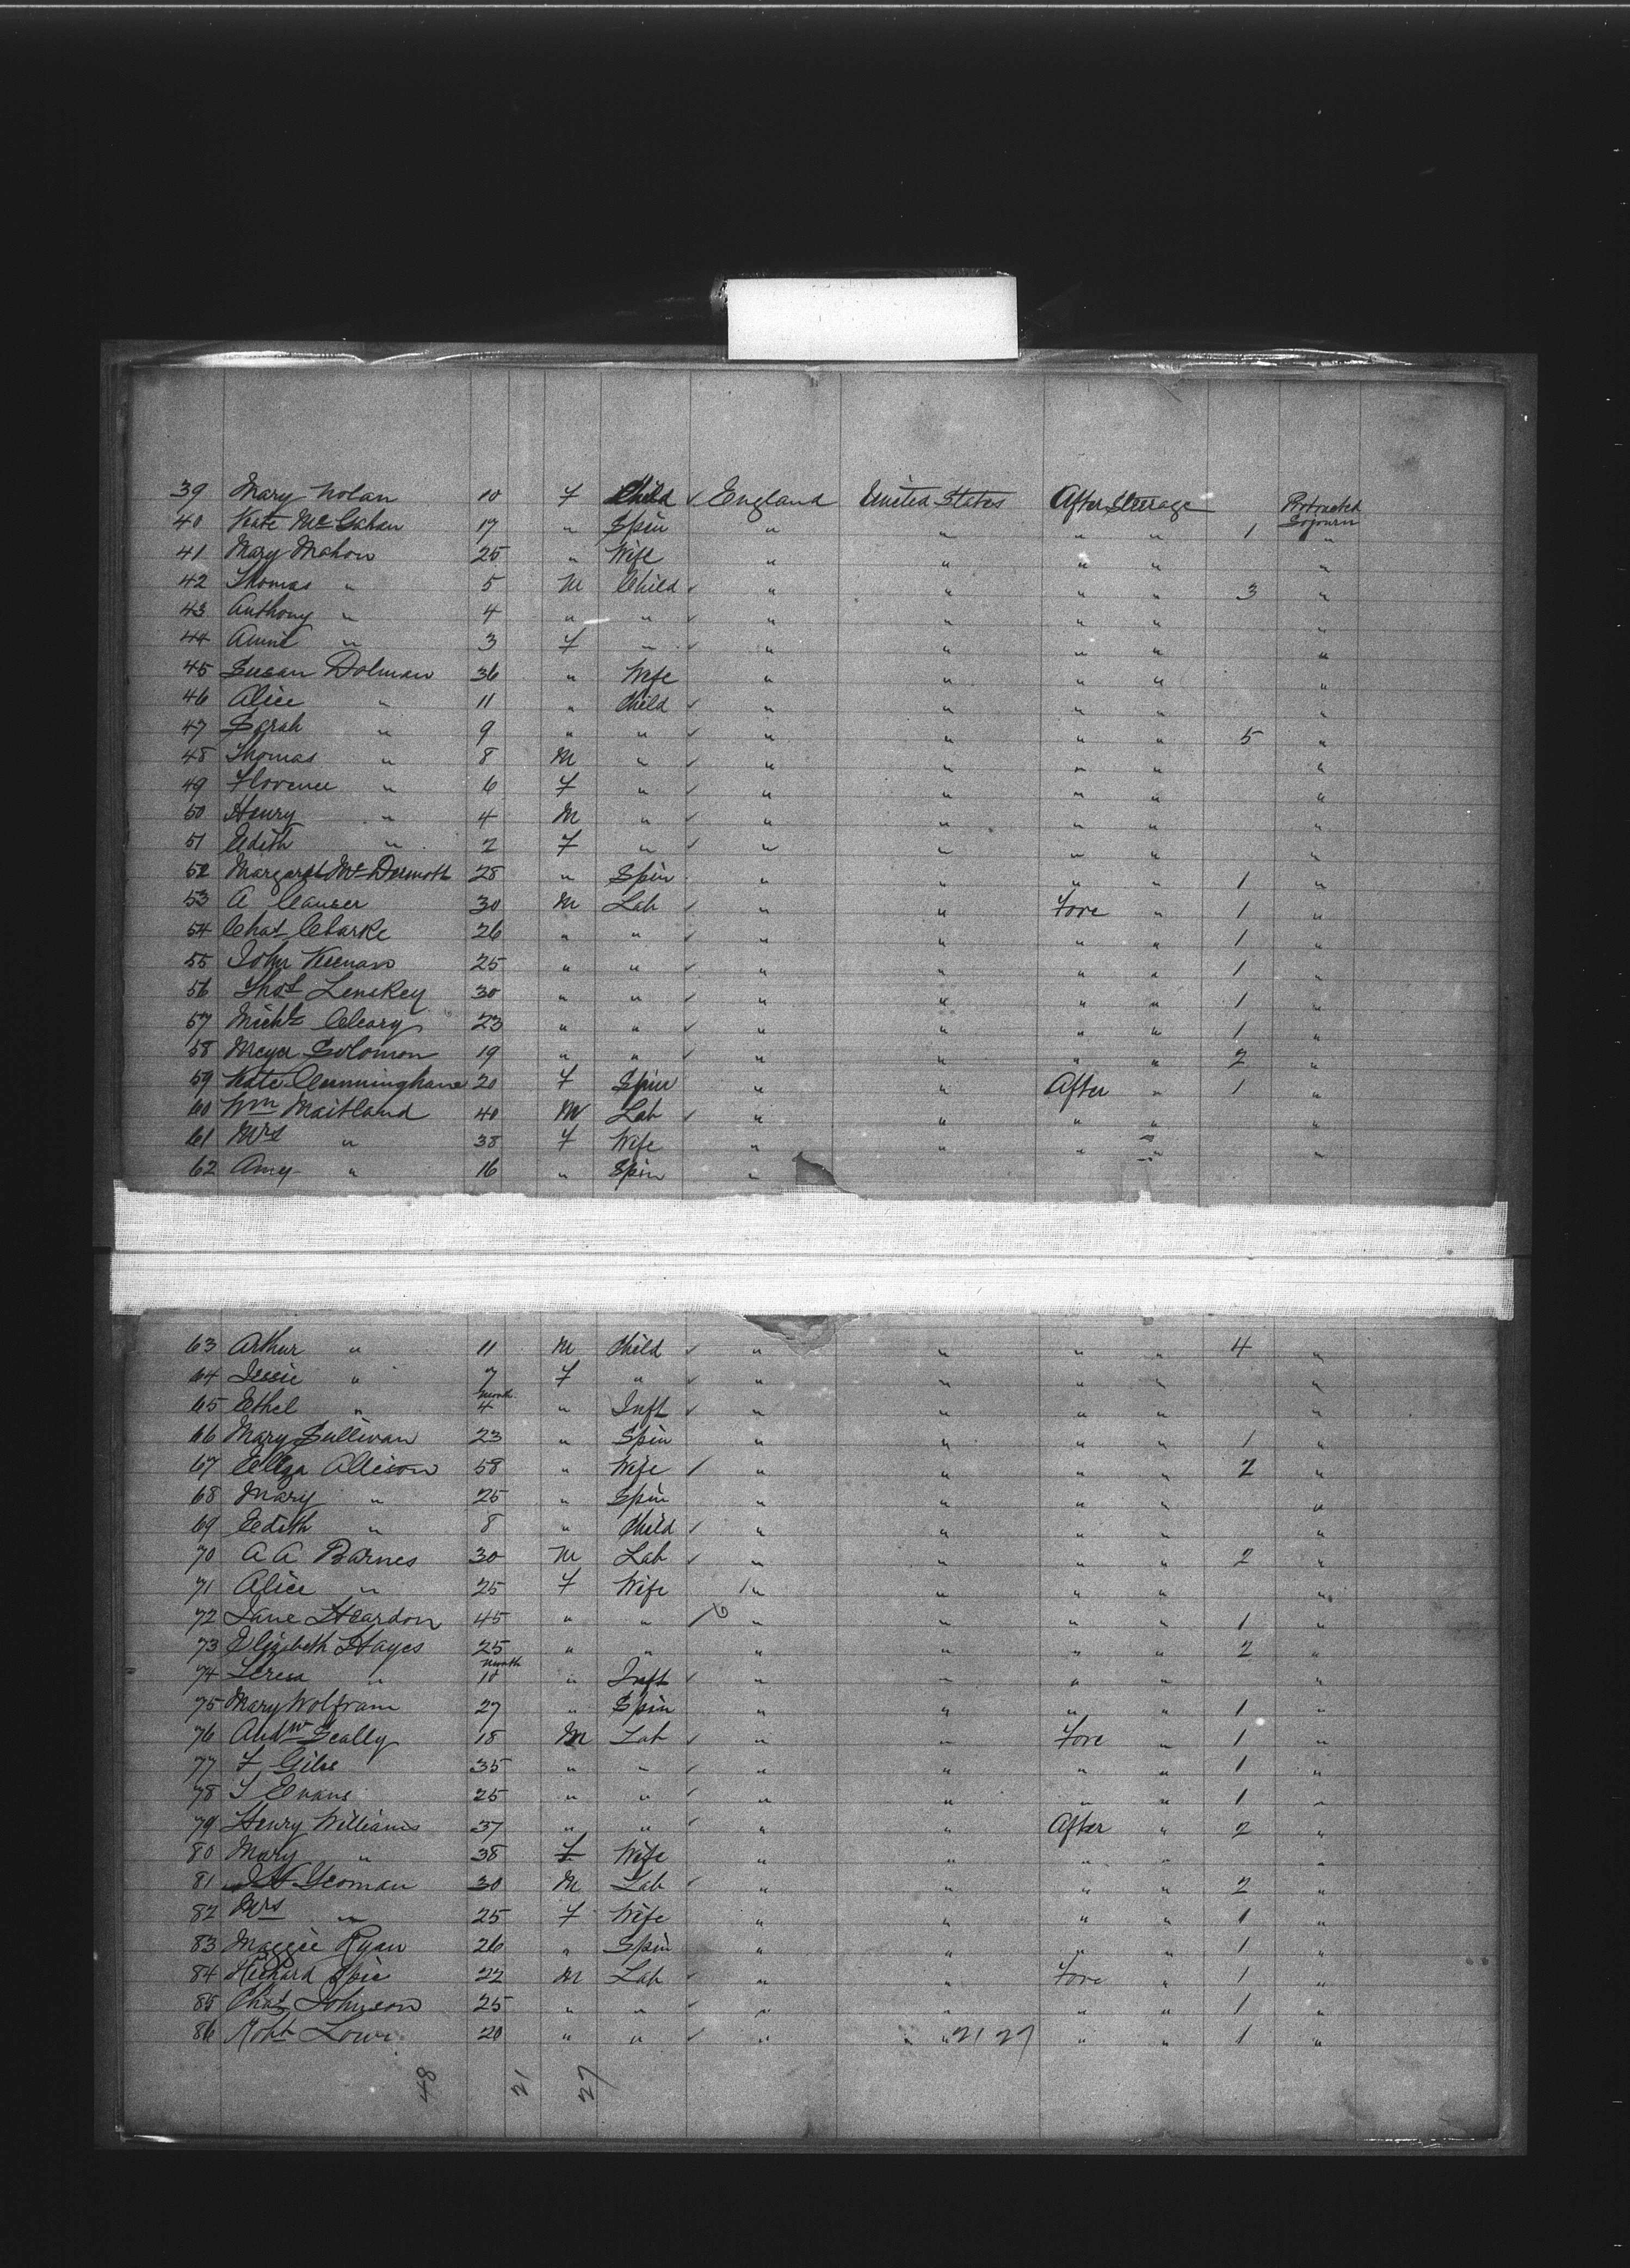 39 Mary Nolan 10 F Child ✓ England United States After Steerage Protracted Sojourn
40 Kate McGahan 17 " Spin " " " " 1 "
41 Mary Mahon 25 " Wife " " " " "
42 Thomas " 5 M Child ✓ " " " " 3 "
43 Anthony " 4 " " ✓ " " " " "
44 Annie " 3 F " ✓ " " " " "
45 Susan Dolman 36 " Wife " " " " "
46 Alice " 11 " Child ✓ " " " " "
47 Sarah " 9 " " ✓ " " " " 5 "
48 Thomas " 8 M " ✓ " " " " "
49 Florence " 6 F " ✓ " " " " "
50 Henry " 4 M " ✓ " " " " "
51 Edith " 2 F " ✓ " " " " "
52 Margaret McDermott 28 " Spin " " " " 1 "
53 A Causer 30 M Lab ✓ " " Fore " 1 "
54 Chas Clarke 26 " " ✓ " " " " 1 "
55 John Keenan 25 " " ✓ " " " " 1 "
56 Thos Lenskey 30 " " ✓ " " " " 1 "
57 Michl Cleary 23 " " ✓ " " " " 1 "
58 Meyer Solomon 19 " " ✓ " " " " 2 "
59 Kate Cunninghane 20 F Spin " " After " 1 "
60 Wm Maitland 40 M Lab ✓ " " " " "
61 Mrs " 38 F Wife " " " " "
62 Amy " 16 " Spin "
63 Arthur " 11 M Child ✓ " " " " 4 "
64 Jessie " 7 F " ✓ " " " " "
65 Ethel " 4 month " Inft ✓ " " " " "
66 Mary Sullivan 23 " Spin " " " " 1 "
67 Eliza Allison 58 " Wife / " " " " 2 "
68 Mary " 25 " Spin " " " " "
69 Edith " 8 " Child ✓ " " " " "
70 A A Barnes 30 M Lab ✓ " " " " 2 "
71 Alice " 25 F Wife / " " " " "
72 Jane Heardon 45 " " / " " " " 1 "
73 Elizabeth Hayes 25 " " " " " " 2 "
74 Teresa " 10 month " Inft ✓ " " " " "
75 Mary Wolfram 27 " Spin " " " " 1 "
76 Andw Scally 18 M Lab ✓ " " Fore " 1 "
77 F Giles 35 " " ✓ " " " " 1 "
78 T Evans 25 " " ✓ " " " " 1 "
79 Henry Williams 37 " " ✓ " " After " 2 "
80 Mary " 38 F Wife " " " " "
81 Yeoman 30 M Lab ✓ " " " " 2 "
82 Mrs " 25 F Wife " " " " 1 "
83 Maggie Ryan 26 " Spin " " " " 1 "
84 Richard 22 M Lab ✓ " " Fore " 1 "
85 Chas Johnson 25 " " ✓ " " " " 1 "
86 Robt Lowe 20 " " ✓ " " 21 27 " " 1 "
48 21 27